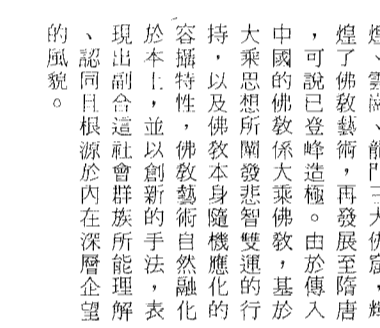 煌、雲崗、龍門三大佛窟，輝
煌了佛教藝術，再發展至隋唐
，可說已登峰造極。由於傳入
中國的佛教係大乘佛教，基於
大乘思想所闡發悲智雙運的行
持，以及佛教本身隨機應化的
容攝特性，佛教藝術自然融化
於本土，並以創新的手法，表
現出副合這社會群族所能理解
、認同且根源於內在深層企望
的風貌。